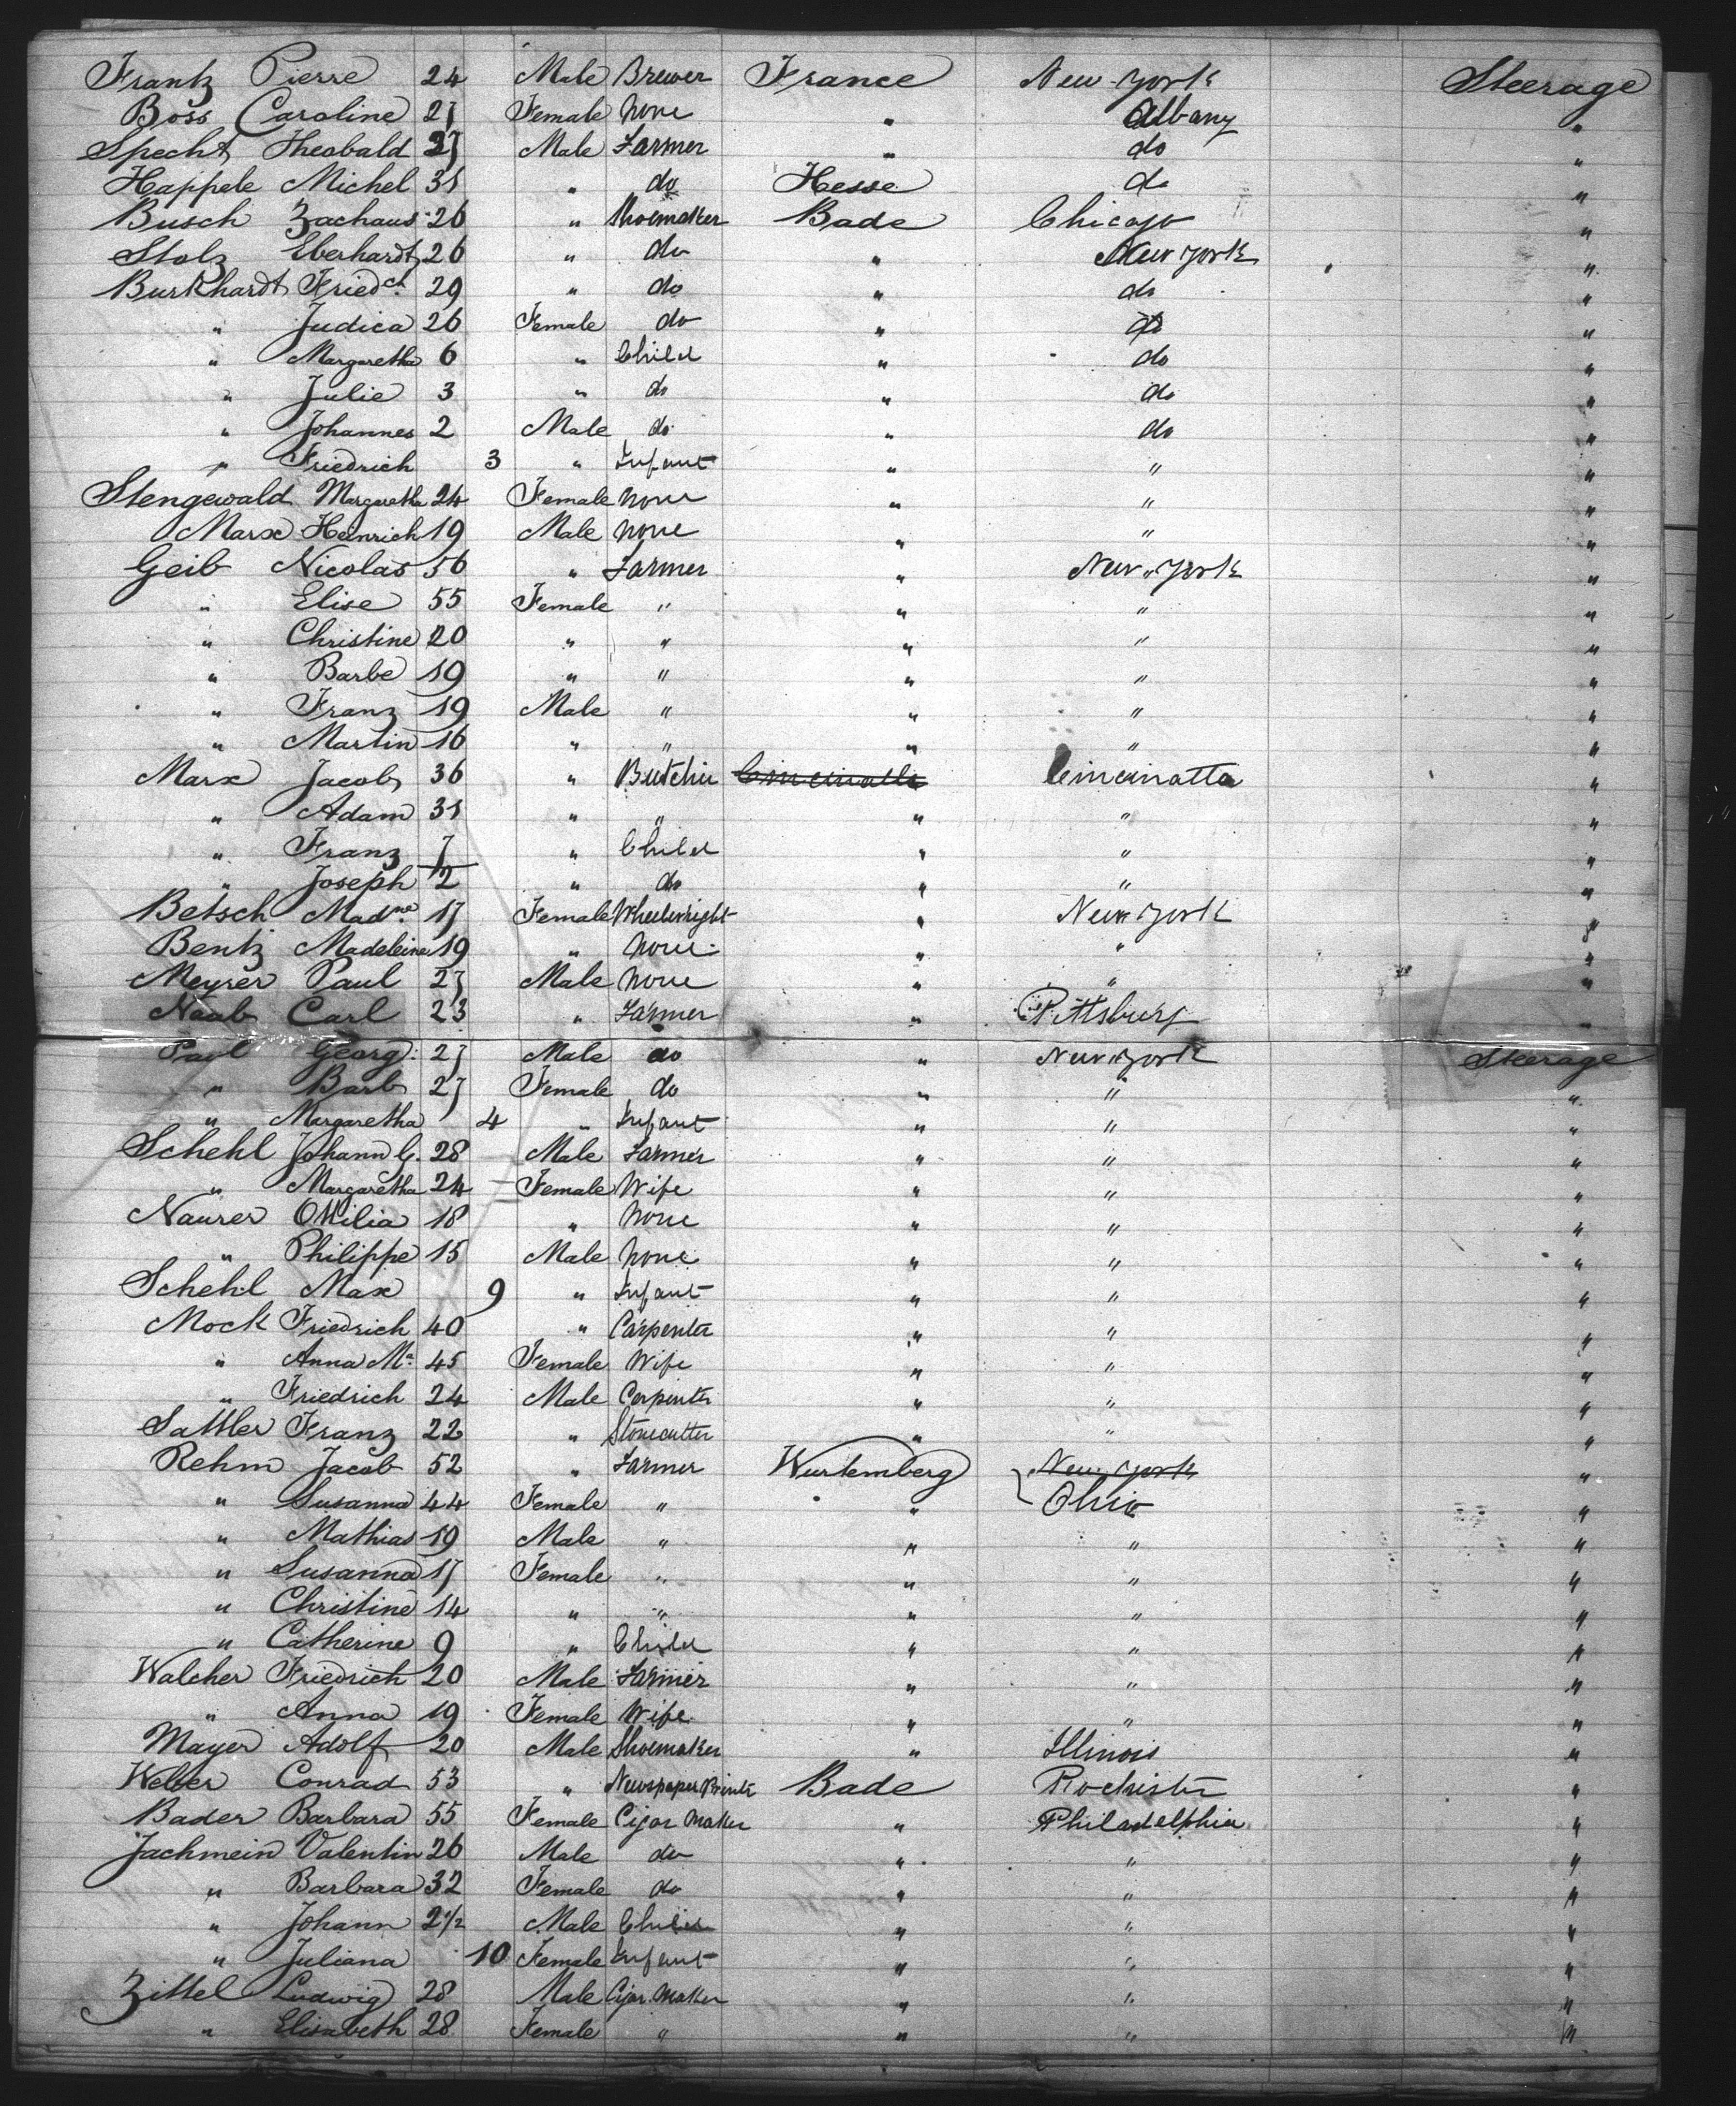 Frantz Pierre 24 Male Brewer France New-York Steerage
Boss Caroline 27 Female none " Albany "
Specht Theobald 27 Male Farmer " do "
Happele Michel 31 " do Hesse do "
Busch Zachaus 26 " Shoemaker Bade Chicago "
Stolz Eberhardt 26 " do " New York "
Burkhardt Friedch. 29 " do " do "
" Judica 26 Female do " do "
" Margaretha 6 " Child " do "
" Julie 3 " do " do "
" Johannes 2 Male do " do "
" Friedrich 3 " Infant " " "
Stengewald Margaretha 24 Female none " " "
Marx Heinrich 19 Male none " " "
Geib Nicolas 56 " Farmer " New-York "
" Elise 55 Female " " " "
" Christine 20 " " " " "
" Barbe 19 " " " " "
" Franz 19 Male " " " "
" Martin 16 " " " " "
Marx Jacob 36 " Butcher Cincinatta Cincinatta "
" Adam 31 " " " " "
" Franz 7 " Child " " "
" Joseph 2 " do " " "
Betsch Madne. 17 Female Wheelwright " New York "
Bentz Madeleine 19 " none " " "
Meyrer Paul 27 Male none " " "
Naab Carl 23 " Farmer " Pittsburg "
Paul Georg: 27 Male do " New York Steerage
" Barb 27 Female do " " "
" Margaretha 4 " Infant " " "
Schehl Johann G. 28 Male Farmer " " "
" Margaretha 24 Female Wife " " "
Naurer Ottilia 18 " none " " "
" Philippe 15 Male none " " "
Schehl Max 9 " Infant " " "
Mock Friedrich 40 " Carpenter " " "
" Anna Ma. 45 Female Wife " " "
" Friedrich 24 Male Carpenter " " "
Sattler Franz 22 " Stonecutter " " "
Rehm Jacob 52 " Farmer Wurtemberg New-York "
" Susanna 44 Female " " Ohio "
" Mathias 19 Male " " " "
" Susanna 17 Female " " " "
" Christine 14 " " " " "
" Catherine 9 " Child " " "
Walcher Friedrich 20 Male Farmer " " "
" Anna 19 Female Wife " " "
Mayer Adolf 20 Male Shoemaker " Illinois "
Weber Conrad 53 " Newspaper Printer Bade Rochister "
Bader Barbara 55 Female Cigar Maker " Philadelphia "
Jachmein Valentin 26 Male do " " "
" Barbara 32 Female do " " "
" Johann 2 1/2 Male Child " " "
" Juliana 10 Female Infant " " "
Zittel Ludwig 28 Male Cigar Maker " " "
" Elisabeth 28 Female " " " "